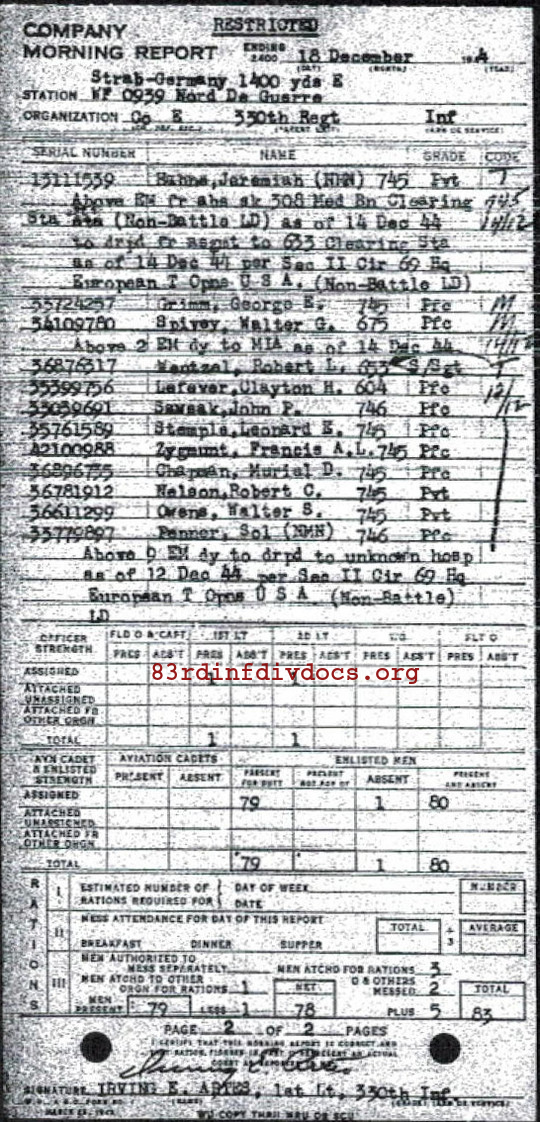 RESTRICTED
COMPANY
MORNING REPORT ENDING 2400 18 December 1944
(DAY) (MONTH) (YEAR)
Strab-Germany 1400 yds E
STATION WF 0939 Nord De Guerre
ORGANIZATION Co E 330th Regt Inf
SERIAL NUMBER NAME GRADE CODE
13111539 Bahne, Jeremiah (NMN) 745 Pvt T
Above EM fr abs sk 308 Med Bn Clearing
Sta (Non-Battle LD) as of 14 Dec 44
to drpd fr asgmt to 633 Clearing Sta
as of 14 Dec 44 per Sec II Cir 69 Hq
European T Opns U S A. (Non-Battle LD)
35724257 Grimm, George E. 745 Pfc M
34109780 Spivey, Walter G. 675 Pfc M
Above 2 EM dy to MIA as of 14 Dec 44
36876317 Wentzel, Robert L. 653 S/Sgt T
35399756 Lefever, Clayton H. 604 Pfc 12/12
33039691 Sawsak, John P. 746 Pfc
35761589 Stemple, Leonard E. 745 Pfc
42100988 Zygmunt, Francis A.L. 745 Pfc
36896735 Chapman, Muriel D. 745 Pfc
36781912 Nelson, Robert C. 745 Pvt
36611299 Owens, Walter S. 745 Pvt
33779897 Penner, Sol (NMN) 746 Pfc
Above 9 EM dy to drpd to unknown hosp
as of 12 Dec 44 per Sec II Cir 69 Hq
European T Opns U S A (Non-Battle)
LD
OFFICER STRENGTH FLD O & CAPT 1ST LT 2D LT W O FLT O
PRES ABS'T PRES ABS'T PRES ABS'T PRES ABS'T PRES ABS'T
ASSIGNED 1 1
83rdinfdivdocs.org
ATTACHED UNASSIGNED
ATTACHED FR OTHER ORGN
TOTAL 1 1
AVN CADET & ENLISTED STRENGTH AVIATION CADETS ENLISTED MEN
PRESENT ABSENT PRESENT FOR DUTY PRESENT NOT FOR DY ABSENT PRESENT AND ABSENT
ASSIGNED 79 1 80
ATTACHED UNASSIGNED
ATTACHED FR OTHER ORGN
TOTAL 79 1 80
RATIONS
I ESTIMATED NUMBER OF RATIONS REQUIRED FOR DAY OF WEEK DATE NUMBER
II MESS ATTENDANCE FOR DAY OF THIS REPORT TOTAL ÷ 3 AVERAGE
BREAKFAST DINNER SUPPER
III MEN AUTHORIZED TO MESS SEPARATELY MEN ATCHD FOR RATIONS 3
MEN ATCHD TO OTHER ORGN FOR RATIONS 1 NET O & OTHERS MESSED 2 TOTAL
MEN PRESENT 79 LESS 1 78 PLUS 5 83
PAGE 2 OF 2 PAGES
I CERTIFY THAT THIS MORNING REPORT IS CORRECT AND
SIGNATURE IRVING E. ARTES, 1st Lt, 330th Inf